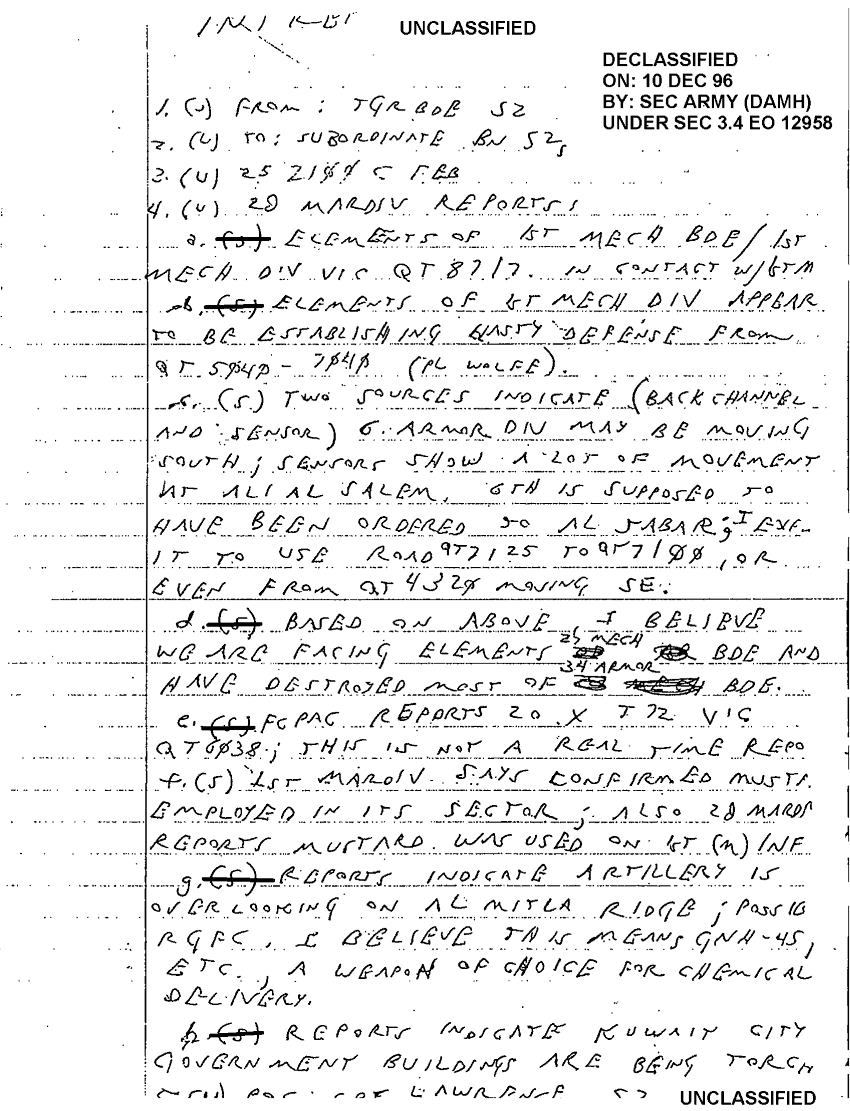 UNCLASSIFIED
DECLASSIFIED
ON: 10 DEC 96
BY: SEC ARMY (DAMH)
UNDER SEC 3.4 EO 12958
1. (U) FROM: TGR BDE S2
2. (U) TO: SUBORDINATE BN S2s
3. (U) 25 21ØØ C FEB
4. (U) 2D MARDIV REPORTS:
a. (S) ELEMENTS OF 1ST MECH BDE/1ST
MECH DIV VIC QT 8717. IN CONTACT W/
b. (S) ELEMENTS OF 1ST MECH DIV APPEAR
TO BE ESTABLISHING HASTY DEFENSE FROM
QT 5Ø4Ø - 7Ø4Ø (PL WOLFE).
c. (S) TWO SOURCES INDICATE (BACK CHANNEL
AND SENSOR) 6. ARMOR DIV MAY BE MOVING
SOUTH; SENSORS SHOW A LOT OF MOVEMENT
AT ALI AL SALEM. 6TH IS SUPPOSED TO
HAVE BEEN ORDERED TO AL JABAR; I
IT TO USE ROAD QT7125 TO QT71ØØ, OR
EVEN FROM QT 432Ø MOVING SE.
d. (S) BASED ON ABOVE, I BELIEVE
WE ARE FACING ELEMENTS 25 MECH BDE AND
HAVE DESTROYED MOST OF 34 ARMOR BDE.
e. (S) REPORTS 20 X T72 VIC
QT6Ø38; THIS IS NOT A REAL TIME REPO
f. (S) 1ST MARDIV SAYS CONFIRMED
EMPLOYED IN ITS SECTOR; ALSO 2D
REPORTS MUSTARD WAS USED ON 1ST (M) INF
g. (S) REPORTS INDICATE ARTILLERY IS
OVERLOOKING ON AL MITLA RIDGE; POSSIB
RGFC. I BELIEVE THIS MEANS GNH-45,
ETC., A WEAPON OF CHOICE FOR CHEMICAL
DELIVERY.
h. (S) REPORTS INDICATE KUWAIT CITY
GOVERNMENT BUILDINGS ARE BEING TORCH
LAWRENCE
UNCLASSIFIED